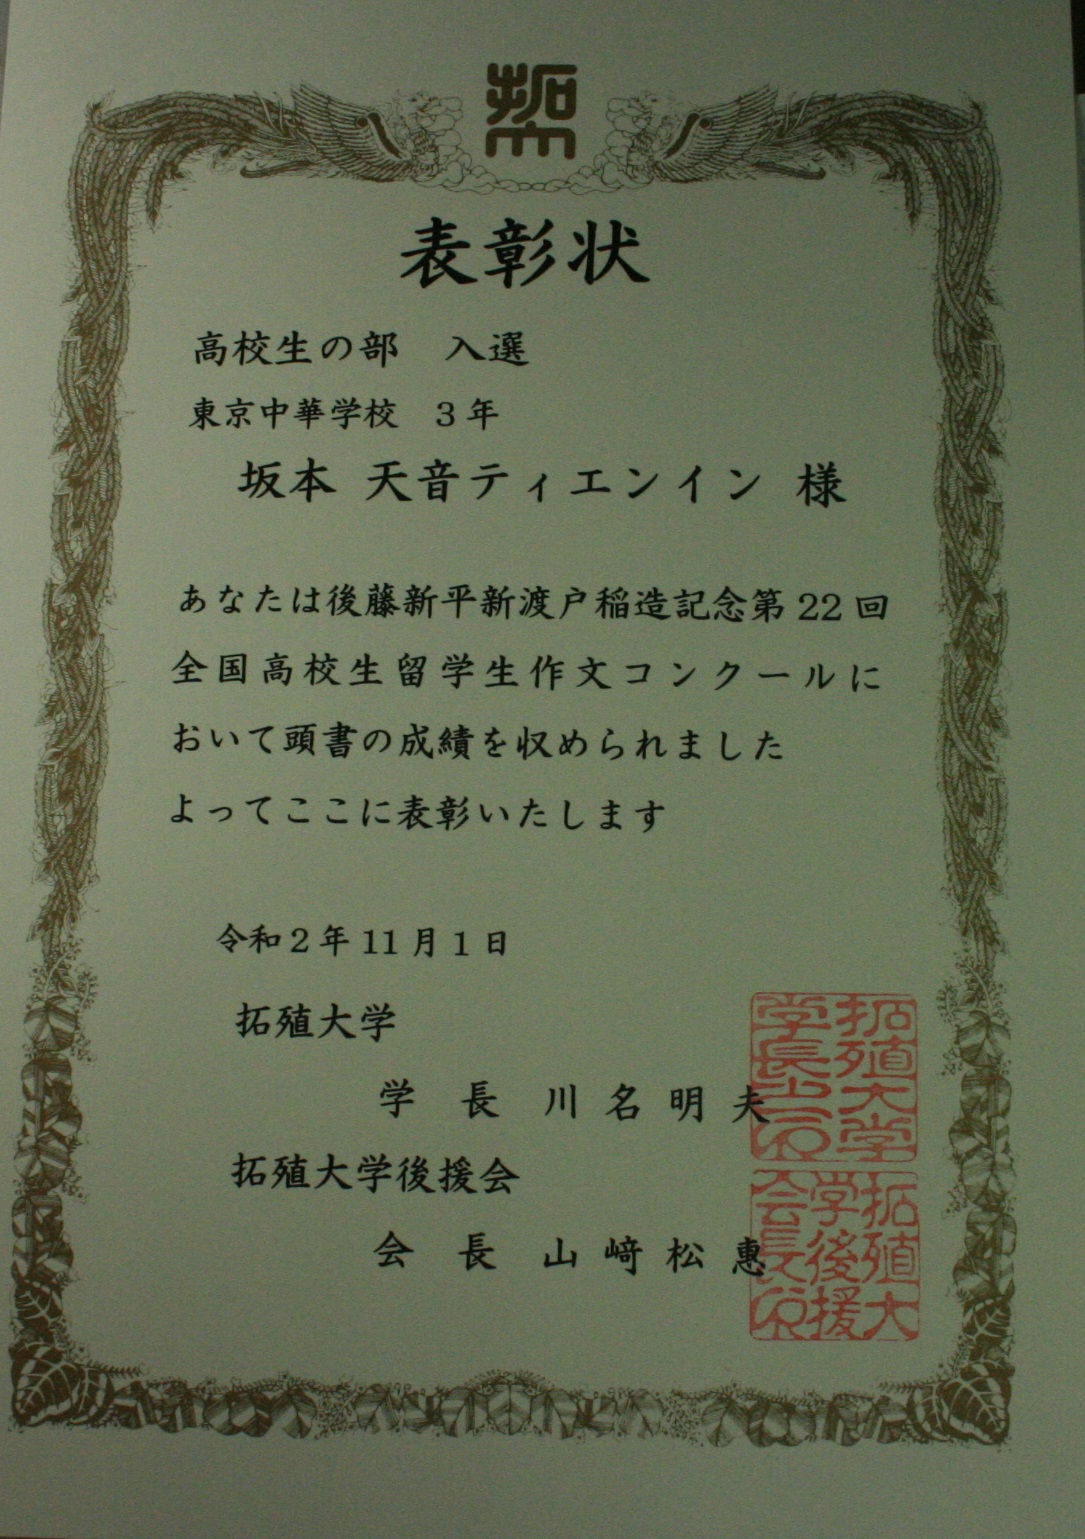 拓大
表彰状
高校生の部　入選
東京中華学校　3年
坂本 天音ティエンイン 様
あなたは後藤新平新渡戸稲造記念第22回
全国高校生留学生作文コンクールに
おいて頭書の成績を収められました
よってここに表彰いたします
令和2年11月1日
拓殖大学
学　長　川名明夫
拓殖大学後援会
会　長　山﨑松惠
拓殖大学
学長之印
拓殖大
学後援
会長印